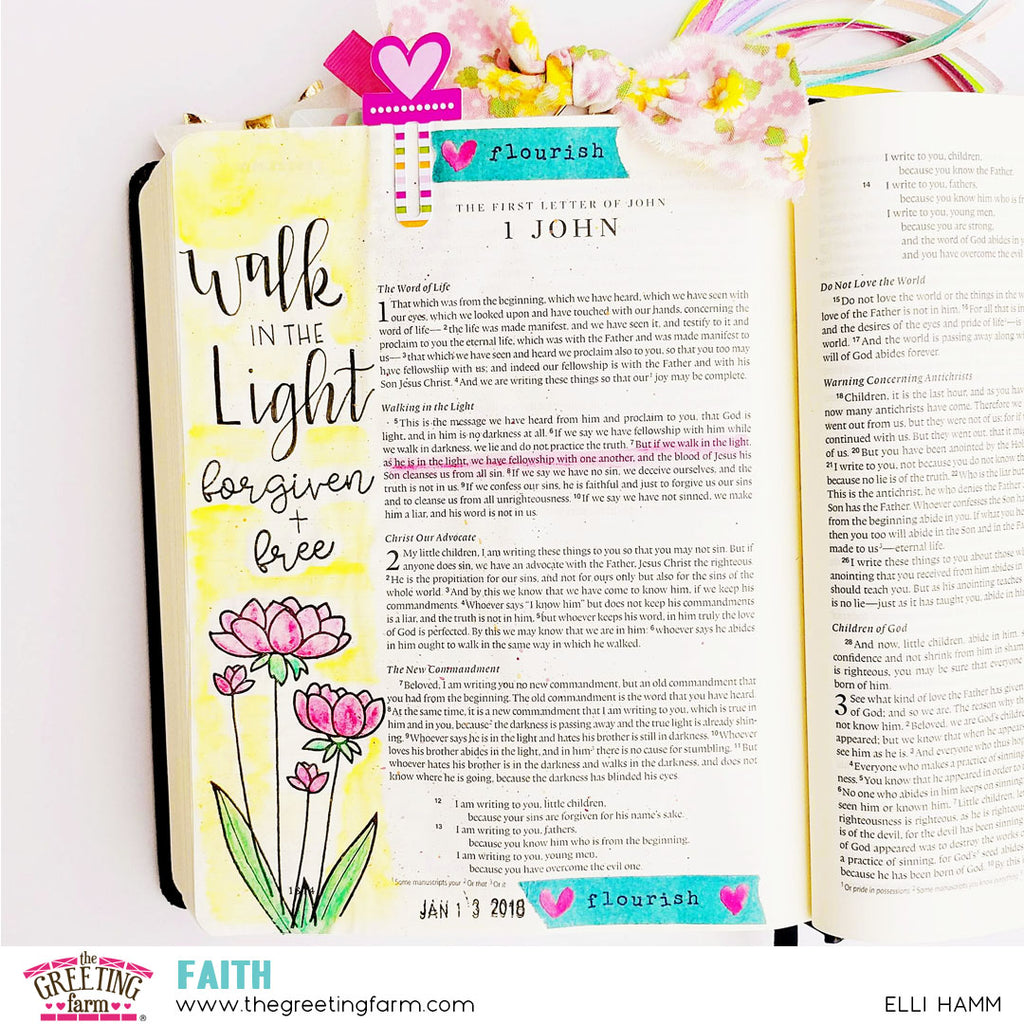 flourish
THE FIRST LETTER OF JOHN
1 JOHN
Walk
IN THE
Light
forgiven
+
free
The Word of Life
1 That which was from the beginning, which we have heard, which we have seen with
our eyes, which we looked upon and have touched with our hands, concerning the
word of life— 2 the life was made manifest, and we have seen it, and testify to it and
proclaim to you the eternal life, which was with the Father and was made manifest to
us— 3 that which we have seen and heard we proclaim also to you, so that you too may
have fellowship with us; and indeed our fellowship is with the Father and with his
Son Jesus Christ. 4 And we are writing these things so that our1 joy may be complete.
Walking in the Light
5 This is the message we have heard from him and proclaim to you, that God is
light, and in him is no darkness at all. 6 If we say we have fellowship with him while
we walk in darkness, we lie and do not practice the truth. 7 But if we walk in the light,
as he is in the light, we have fellowship with one another, and the blood of Jesus his
Son cleanses us from all sin. 8 If we say we have no sin, we deceive ourselves, and the
truth is not in us. 9 If we confess our sins, he is faithful and just to forgive us our sins
and to cleanse us from all unrighteousness. 10 If we say we have not sinned, we make
him a liar, and his word is not in us.
Christ Our Advocate
2 My little children, I am writing these things to you so that you may not sin. But if
anyone does sin, we have an advocate with the Father, Jesus Christ the righteous.
2 He is the propitiation for our sins, and not for ours only but also for the sins of the
whole world. 3 And by this we know that we have come to know him, if we keep his
commandments. 4 Whoever says "I know him" but does not keep his commandments
is a liar, and the truth is not in him, 5 but whoever keeps his word, in him truly the love
of God is perfected. By this we may know that we are in him: 6 whoever says he abides
in him ought to walk in the same way in which he walked.
The New Commandment
7 Beloved, I am writing you no new commandment, but an old commandment that
you had from the beginning. The old commandment is the word that you have heard.
8 At the same time, it is a new commandment that I am writing to you, which is true in
him and in you, because2 the darkness is passing away and the true light is already shin-
ing. 9 Whoever says he is in the light and hates his brother is still in darkness. 10 Whoever
loves his brother abides in the light, and in him3 there is no cause for stumbling. 11 But
whoever hates his brother is in the darkness and walks in the darkness, and does not
know where he is going, because the darkness has blinded his eyes.
12 I am writing to you, little children,
because your sins are forgiven for his name's sake.
13 I am writing to you, fathers,
because you know him who is from the beginning.
I am writing to you, young men,
because you have overcome the evil one.
1 Some manuscripts your 2 Or that 3 Or it
JAN 13 2018
flourish
I write to you, children,
because you know the Father.
14 I write to you, fathers,
because you know him who is fr
I write to you, young men,
because you are strong,
and the word of God abides in y
and you have overcome the evil
Do Not Love the World
15 Do not love the world or the things in the w
love of the Father is not in him. 16 For all that is i
and the desires of the eyes and pride of life1—is
world. 17 And the world is passing away along wi
will of God abides forever.
Warning Concerning Antichrists
18 Children, it is the last hour, and as you hav
now many antichrists have come. Therefore we
went out from us, but they were not of us; for if
continued with us. But they went out, that it mig
of us. 20 But you have been anointed by the H
21 I write to you, not because you do not know th
because no lie is of the truth. 22 Who is the liar but
This is the antichrist, he who denies the Father
Son has the Father. Whoever confesses the Son has
from the beginning abide in you. If what you hea
then you too will abide in the Son and in the Fa
made to us2—eternal life.
26 I write these things to you about those wh
anointing that you received from him abides in
should teach you. But as his anointing teaches
is no lie—just as it has taught you, abide in hi
Children of God
28 And now, little children, abide in him, s
confidence and not shrink from him in sham
is righteous, you may be sure that everyone
born of him.
3 See what kind of love the Father has given
of God; and so we are. The reason why th
not know him. 2 Beloved, we are God's childr
appeared; but we know that when he appear
see him as he is. 3 And everyone who thus hop
4 Everyone who makes a practice of sinning
ness. 5 You know that he appeared in order to
6 No one who abides in him keeps on sinning
seen him or known him. 7 Little children, le
righteousness is righteous, as he is righteou
is of the devil, for the devil has been sinning
of God appeared was to destroy the works o
a practice of sinning, for God's3 seed abides
because he has been born of God. 10 By this
1 Or pride in possessions 2 Some manuscripts you
the
GREETING
farm
FAITH
www.thegreetingfarm.com
ELLI HAMM